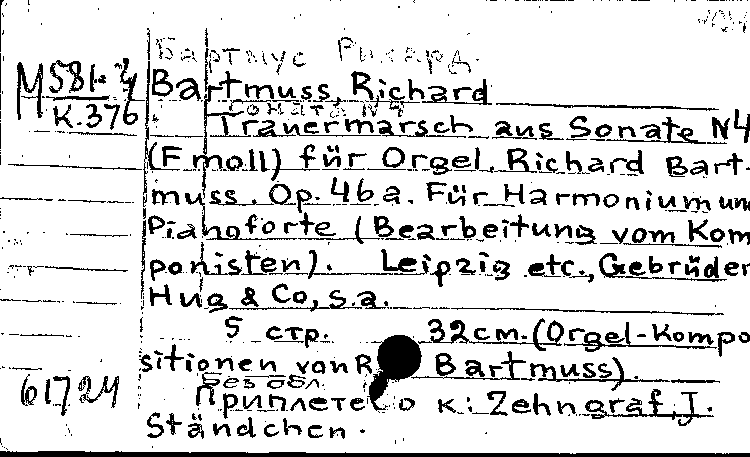 Бартмус Рихард.
М581-2/К.376
Bartmuss, Richard
Соната N4
Trauermarsch aus Sonate N4
(F moll) für Orgel, Richard Bart-
muss. Op. 46a. Für Harmonium un
Pianoforte (Bearbeitung vom Kom
ponisten). Leipzig etc., Gebrüder
Hug & Co, s.a.
5 стр. 32cm. (Orgel-Kompo
sitionen von R Bartmuss).
Без обл.
61724 Приплетено к: Zehngraf, J.
Ständchen.